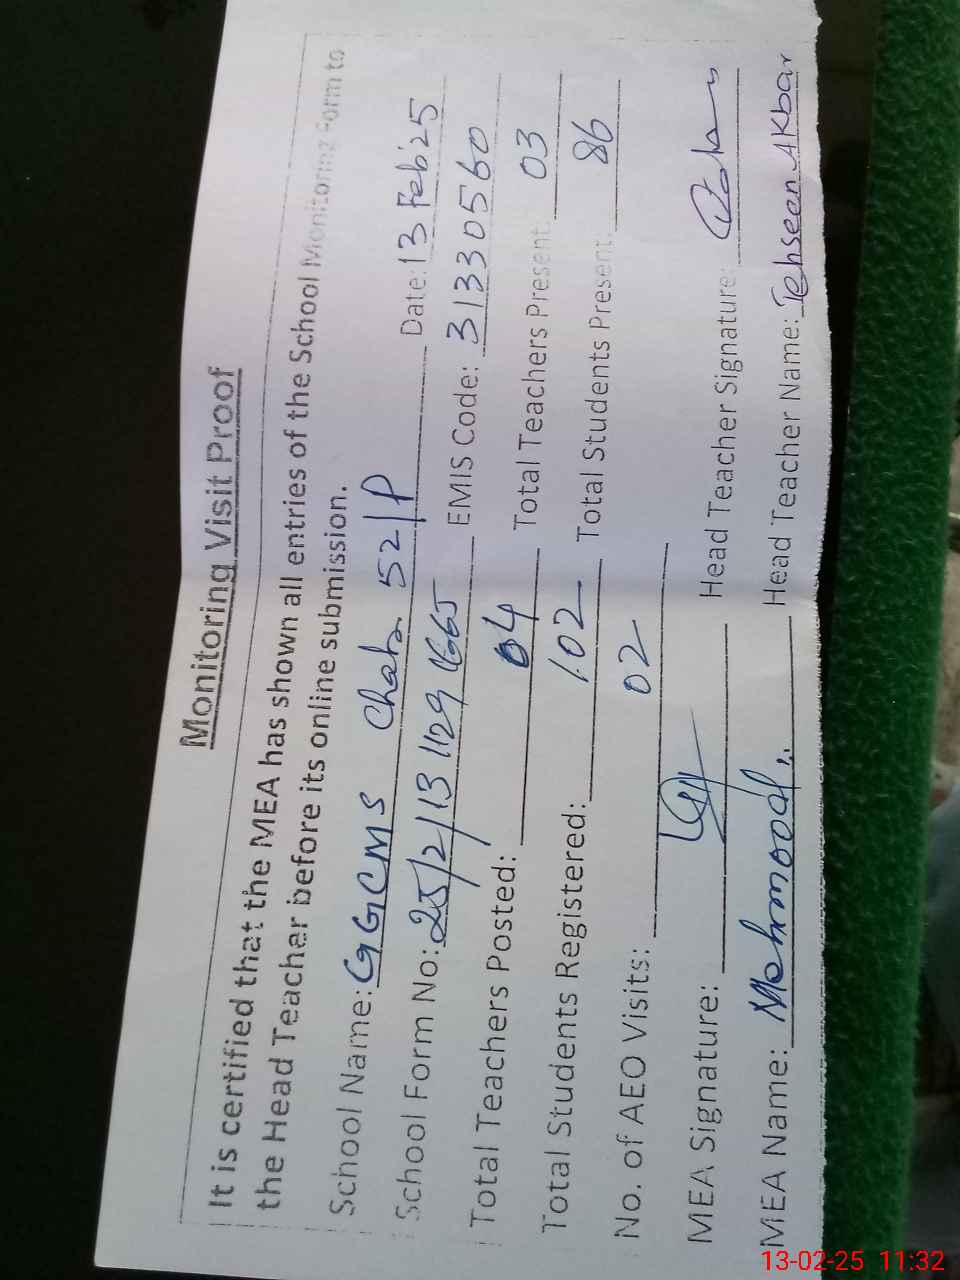 Monitoring Visit Proof
It is certified that the MEA has shown all entries of the School Monitoring Form to
the Head Teacher before its online submission.
School Name: GGCMS Chak 52/P Date: 13 Feb'25
School Form No: 25/2/13 1129 1665 EMIS Code: 31330560
Total Teachers Posted: 04 Total Teachers Present: 03
Total Students Registered: 102 Total Students Present: 86
No. of AEO Visits: 02
MEA Signature: Head Teacher Signature:
MEA Name: Mehmood Head Teacher Name: Tehseen Akbar
13-02-25 11:32